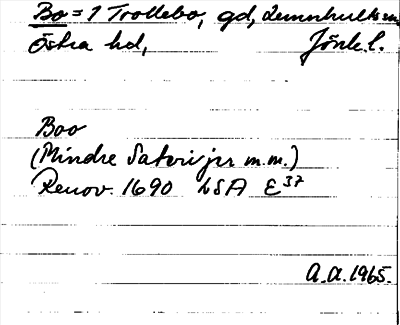 Bo = 1 Trollebo, gd, Lemnhults sn,
Östra hd, Jönk. l.
Boo
(Mindre Säterijer m.m.)
Renov. 1690 LSA E 37
A.a. 1965.